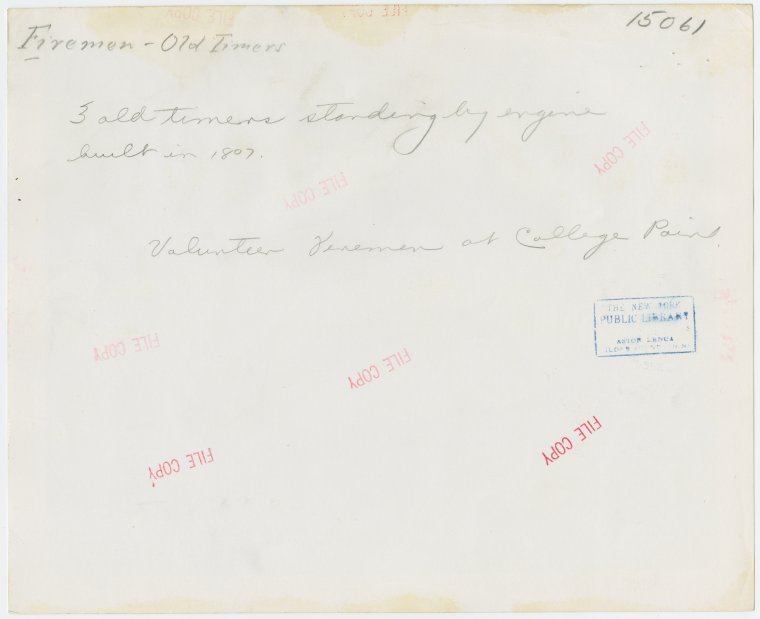 15061
Firemen - Old Timers
3 old timers standing by engine
built in 1807.
Volunteer Firemen at College Point
FILE COPY
FILE COPY
THE NEW YORK
PUBLIC LIBRARY
ASTOR LENOX
FILE COPY
FILE COPY
FILE COPY
FILE COPY